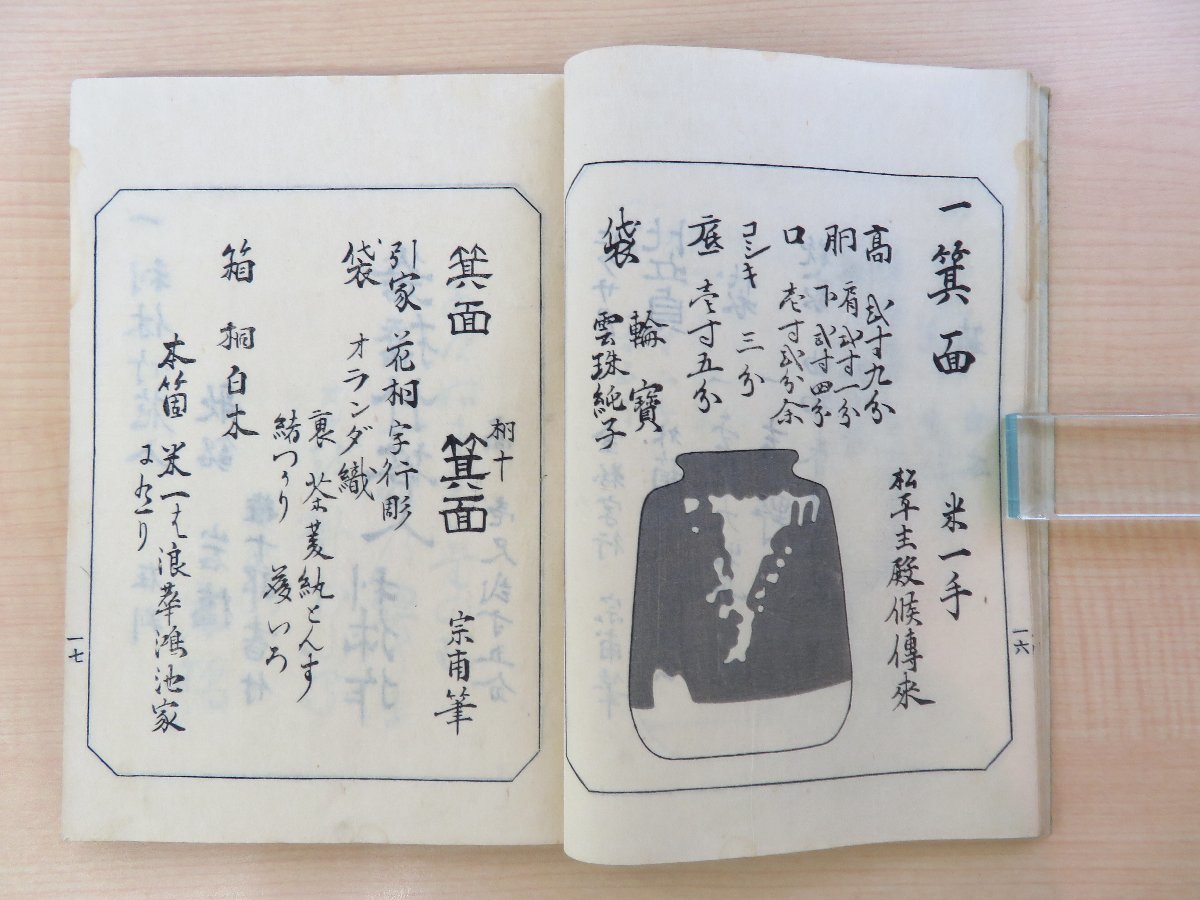 一箕面 米一手
松平主殿候傳来
高 弍寸九分
胴 肩弍寸一分
下弍寸四分
口 壱寸弍分余
コシキ 三分
底 壱寸五分
袋 輪寶
雲珠純子
一六
箕面 箕面 宗甫筆
桐十
引家 花桐 字行彫
袋 オランダ織
裏 茶菱紈とんす
緒つかり 茂いろ
箱 桐白木
本箇米一は浪華鴻池家
一七